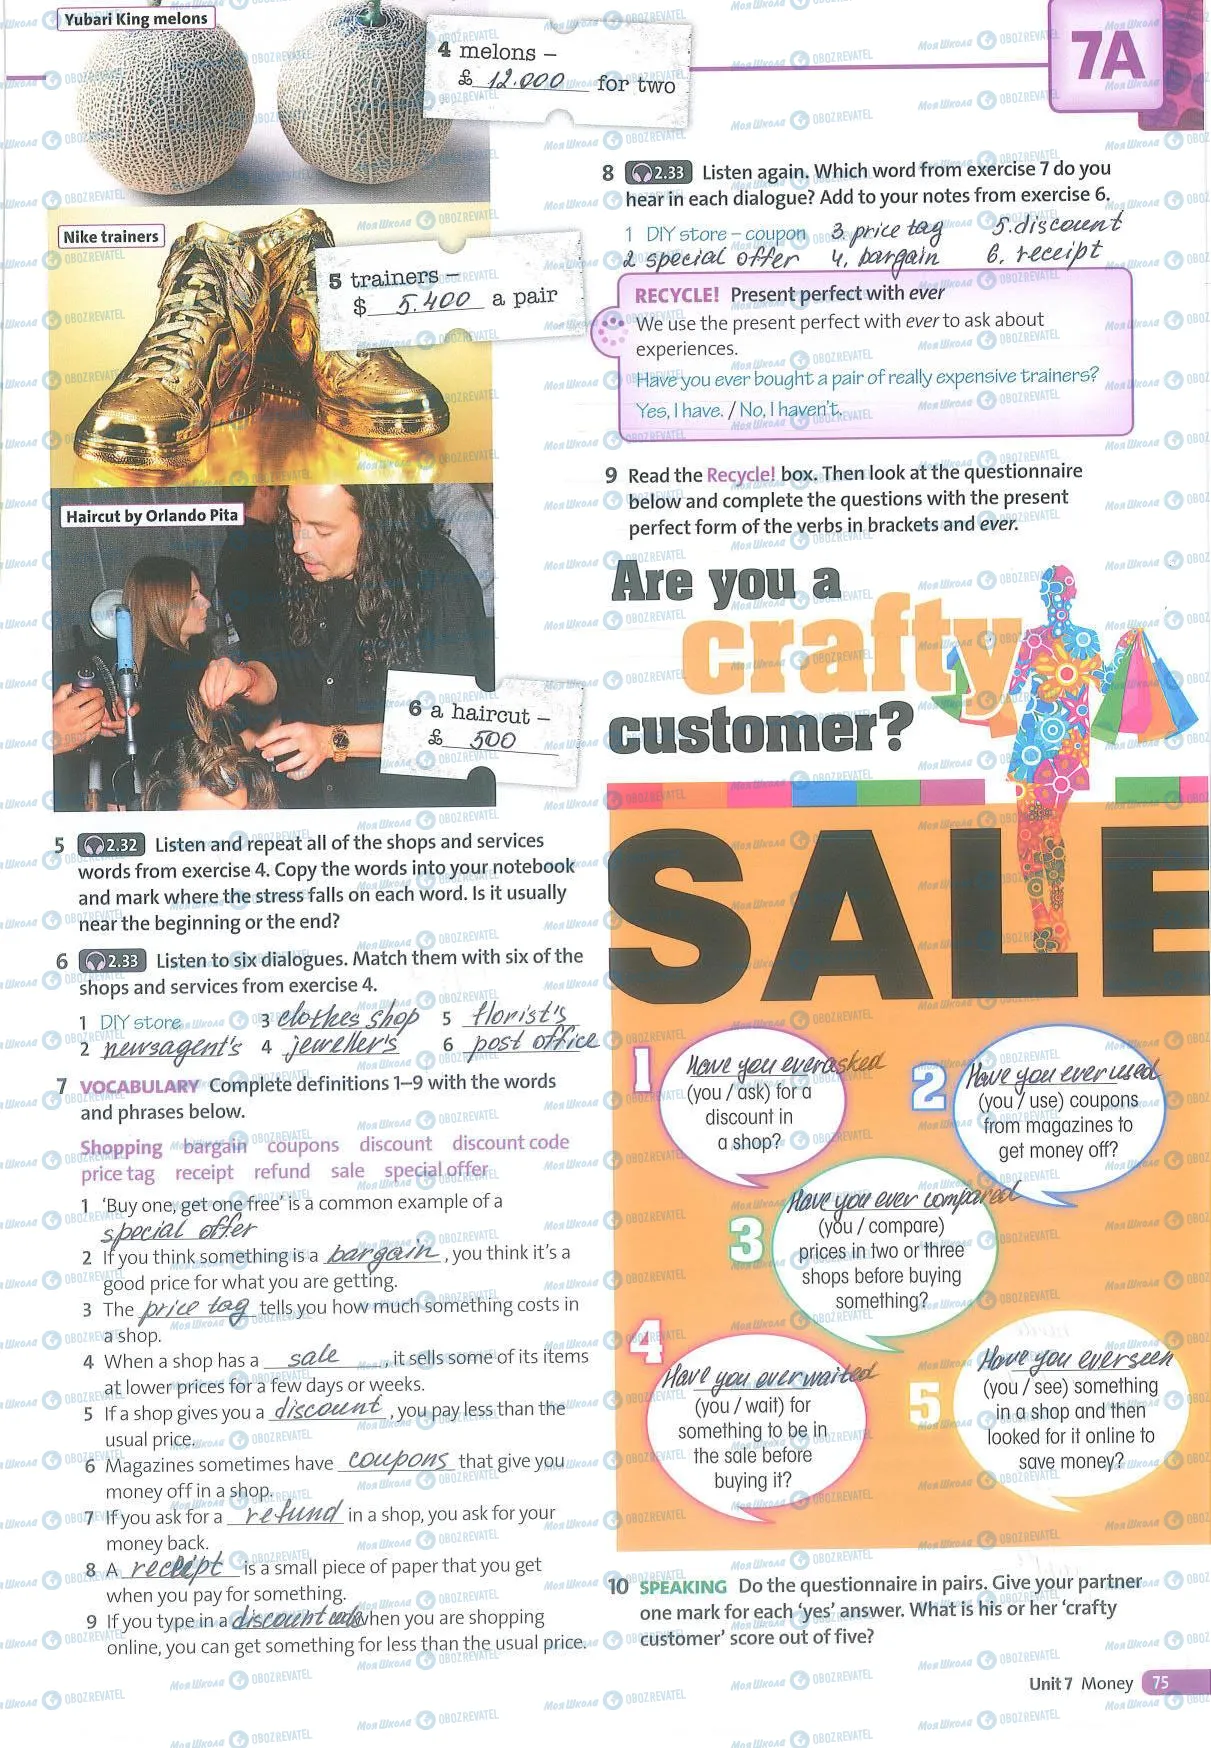 Yubari King melons
4 melons –
£ 12.000 for two
7A
Nike trainers
5 trainers –
$ 5.400 a pair
Haircut by Orlando Pita
6 a haircut –
£ 500
5 2.32 Listen and repeat all of the shops and services
words from exercise 4. Copy the words into your notebook
and mark where the stress falls on each word. Is it usually
near the beginning or the end?
6 2.33 Listen to six dialogues. Match them with six of the
shops and services from exercise 4.
1 DIY store 3 clothes shop 5 florist's
2 newsagent's 4 jeweller's 6 post office
7 VOCABULARY Complete definitions 1–9 with the words
and phrases below.
Shopping bargain coupons discount discount code
price tag receipt refund sale special offer
1 'Buy one, get one free' is a common example of a
special offer
2 If you think something is a bargain, you think it's a
good price for what you are getting.
3 The price tag tells you how much something costs in
a shop.
4 When a shop has a sale, it sells some of its items
at lower prices for a few days or weeks.
5 If a shop gives you a discount, you pay less than the
usual price.
6 Magazines sometimes have coupons that give you
money off in a shop.
7 If you ask for a refund in a shop, you ask for your
money back.
8 A receipt is a small piece of paper that you get
when you pay for something.
9 If you type in a discount code when you are shopping
online, you can get something for less than the usual price.
8 2.33 Listen again. Which word from exercise 7 do you
hear in each dialogue? Add to your notes from exercise 6.
1 DIY store – coupon 3. price tag 5. discount
2 special offer 4. bargain 6. receipt
RECYCLE! Present perfect with ever
We use the present perfect with ever to ask about
experiences.
Have you ever bought a pair of really expensive trainers?
Yes, I have. / No, I haven't.
9 Read the Recycle! box. Then look at the questionnaire
below and complete the questions with the present
perfect form of the verbs in brackets and ever.
Are you a
crafty
customer?
SALE
1 Have you ever asked
(you / ask) for a
discount in
a shop?
2 Have you ever used
(you / use) coupons
from magazines to
get money off?
3 Have you ever compared
(you / compare)
prices in two or three
shops before buying
something?
4 Have you ever waited
(you / wait) for
something to be in
the sale before
buying it?
5 Have you ever seen
(you / see) something
in a shop and then
looked for it online to
save money?
10 SPEAKING Do the questionnaire in pairs. Give your partner
one mark for each 'yes' answer. What is his or her 'crafty
customer' score out of five?
Unit 7 Money 75
Моя Школа OBOZREVATEL